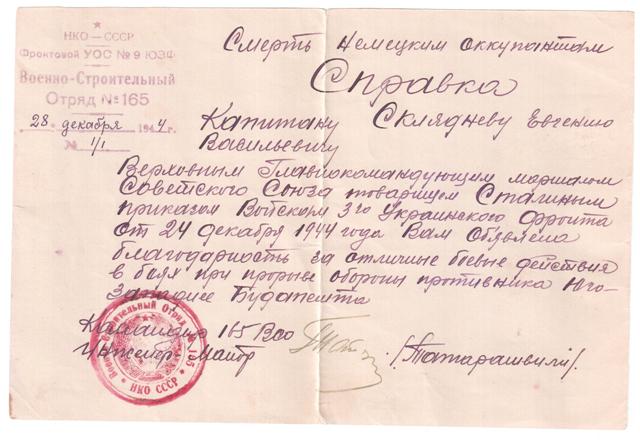 НКО — СССР
Фронтовой УОС № 9 ЮЗФ
Военно-Строительный
Отряд № 165
28 декабря 1944 г.
№ 1/1
Смерть немецким оккупантам
Справка
Капитану Склядневу Евгению
Васильевичу
Верховным Главнокомандующим маршалом
Советского Союза товарищем Сталиным
приказом Войскам 3го Украинского фронта
от 24 декабря 1944 года Вам объявлена
благодарность за отличные боевые действия
в боях при прорыве обороны противника Юго-
Западнее Будапешта
Командир 165 ВСО
Инженер-Майор
/Татарашвили/
Строительный Отряд № 165
НКО СССР